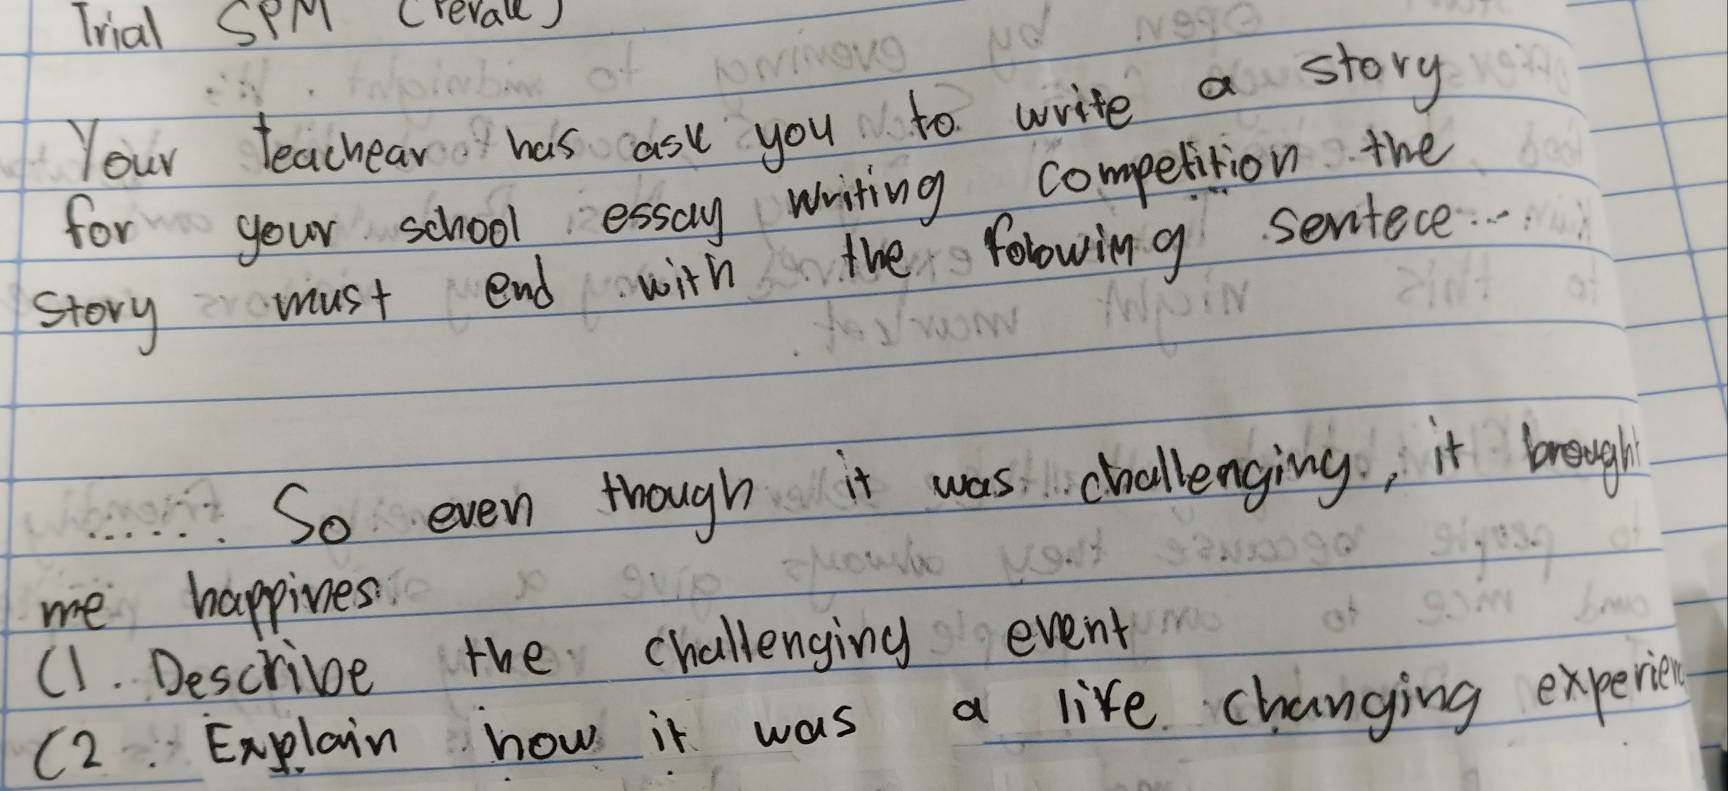 Trial SPM
Your teachear has ask you to write a story
for your school essay writing competition the
story must end with the folowing sentece...
...... So even though it was challenging, it brough
me happines.
(1. Describe the challenging event
(2. Explain how it was a life changing experien